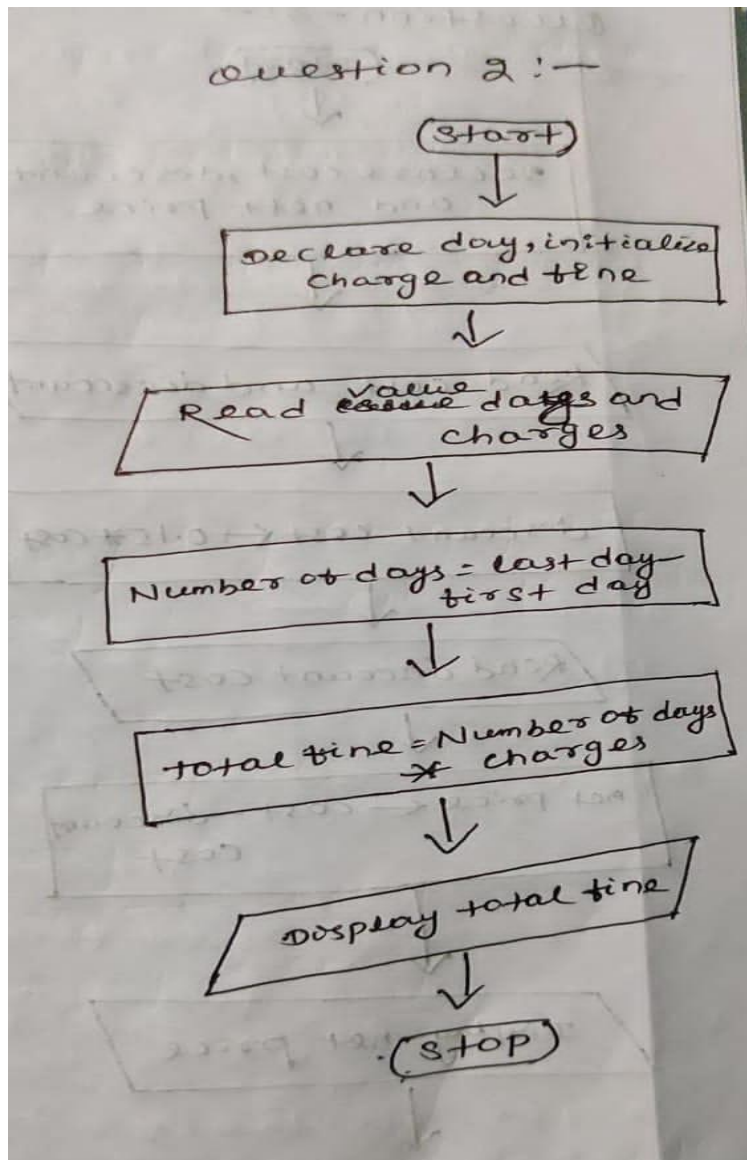 Question 2 :-
Start
Declare day, initialize
charge and fine
value
Read dates and
charges
Number of days = last day -
first day
total fine = Number of days
* charges
Display total fine
Stop